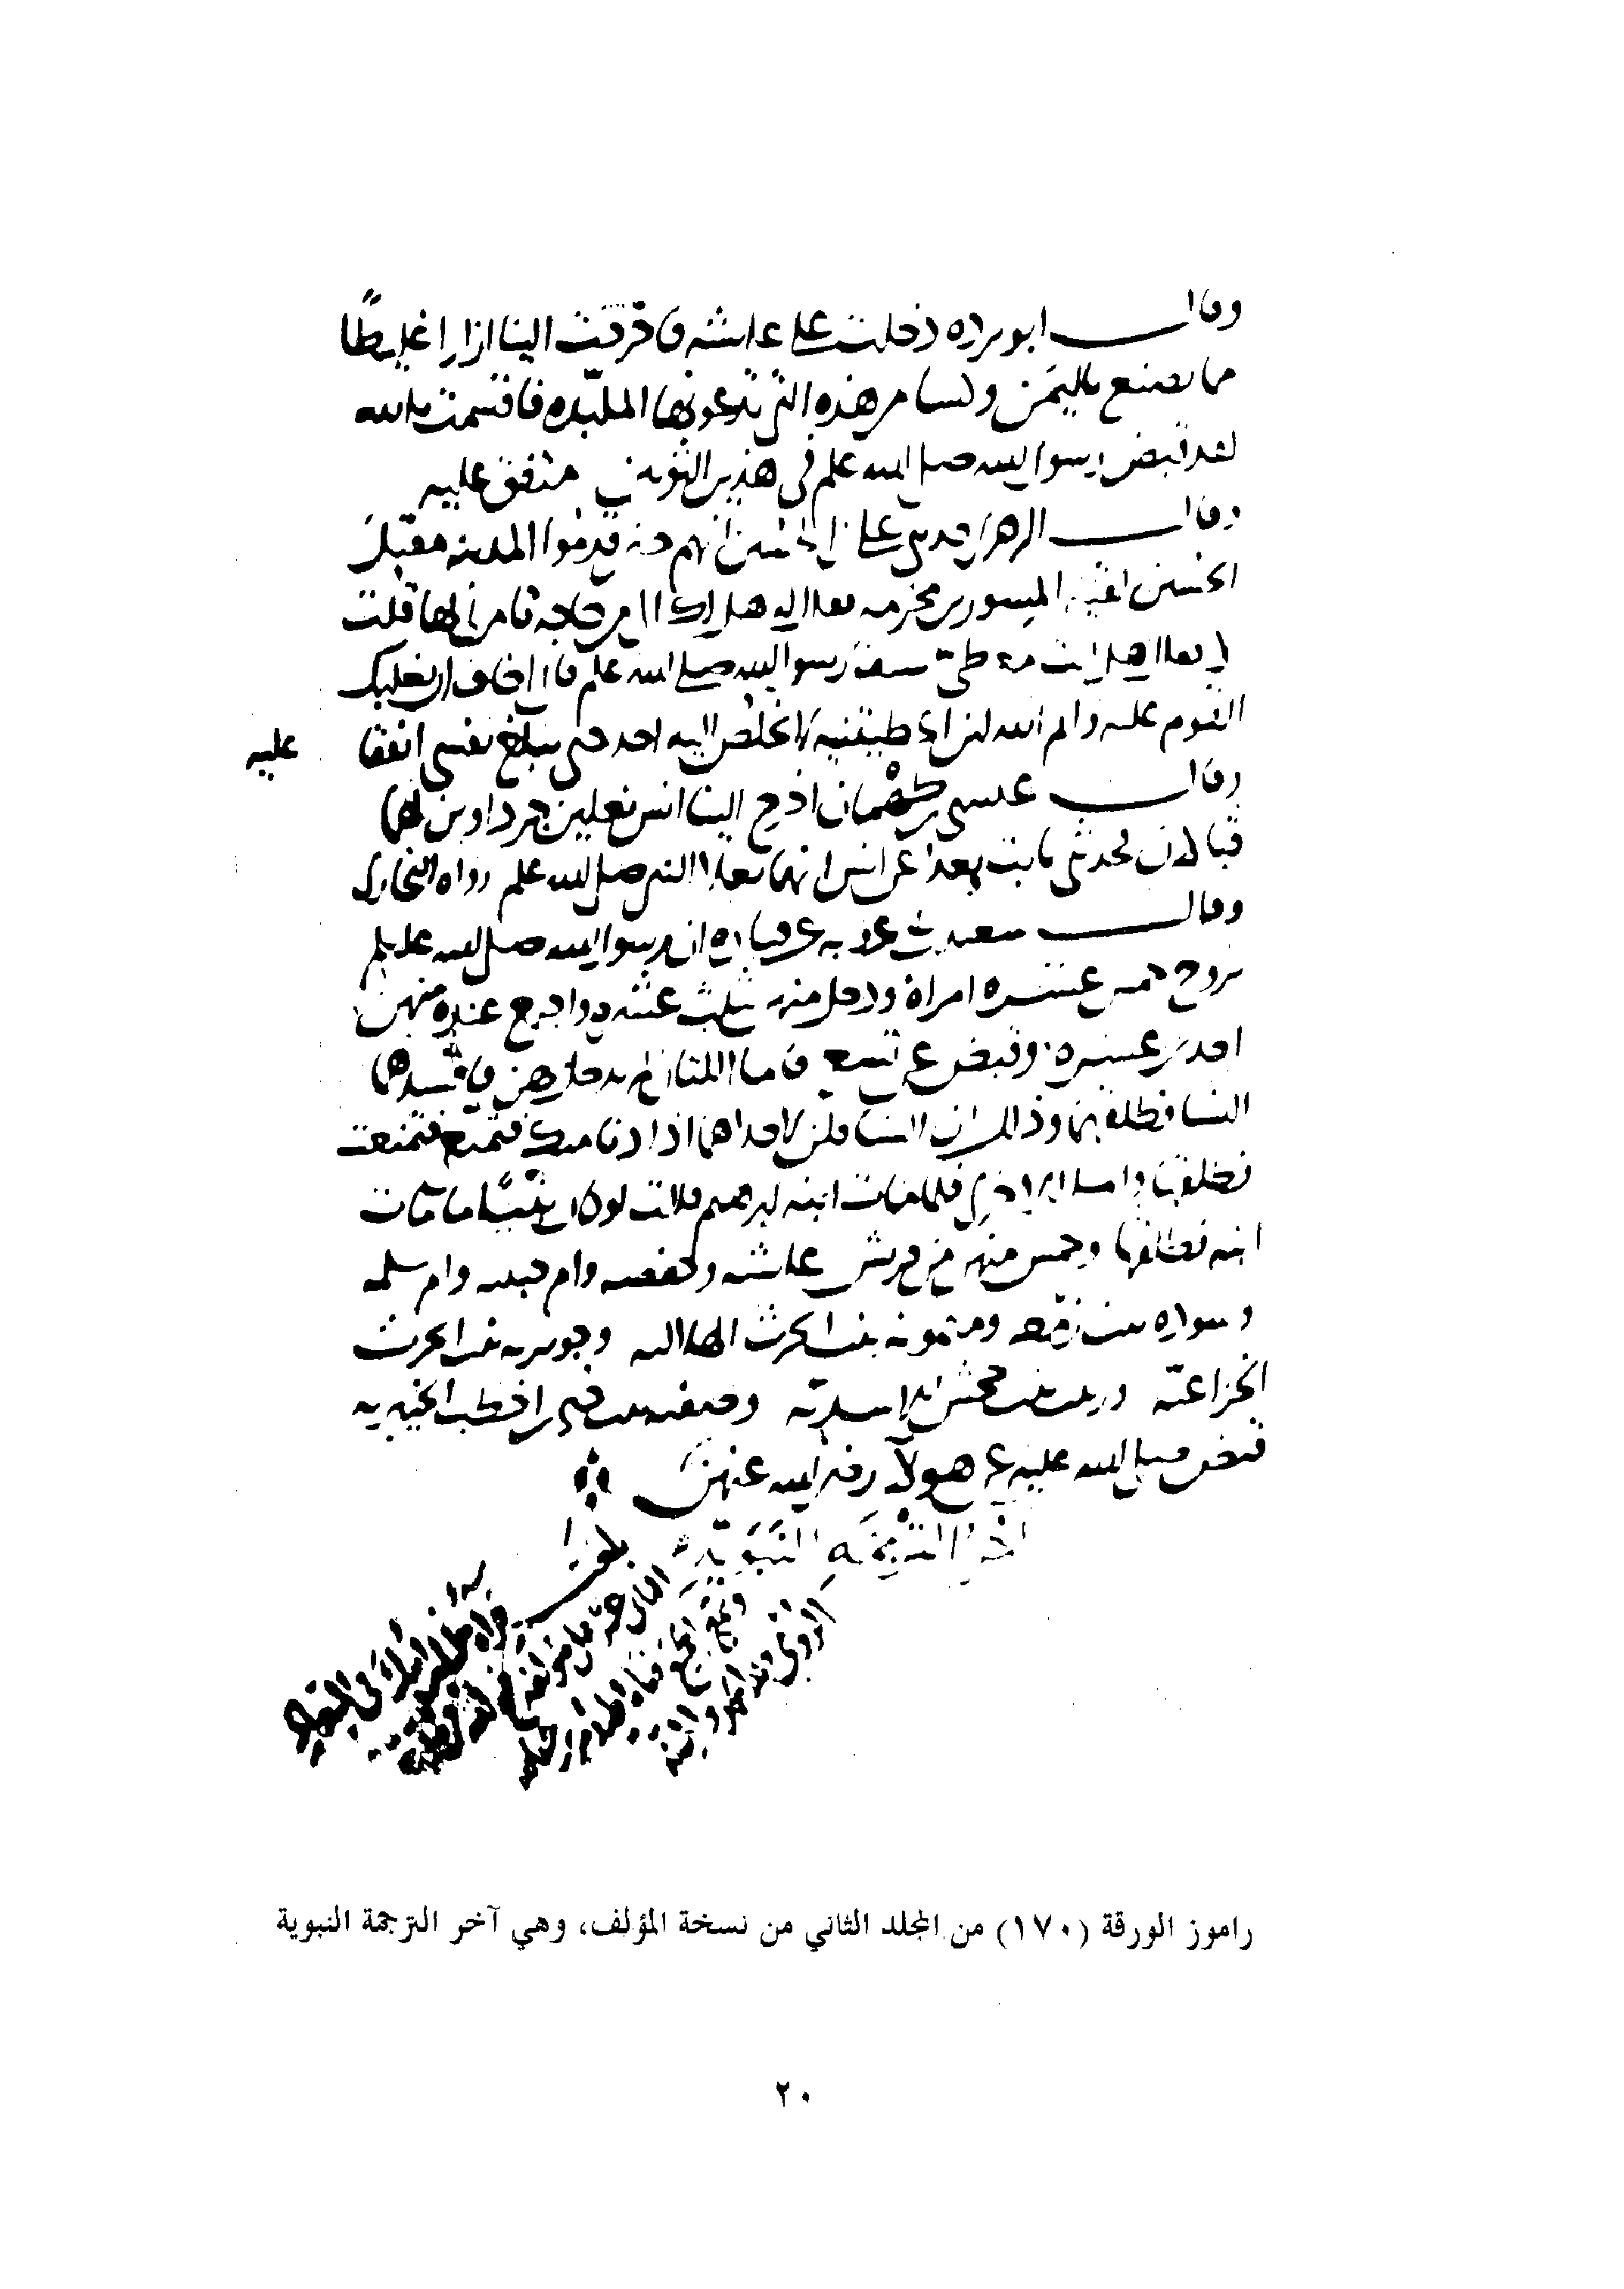 وقال ابو برده دخلت على عايشه فاخرجت الينا ازارا غليظا
مما يصنع باليمن وكسا من هذه التي تدعونها الملبده فاقسمت بالله
لقد قبض رسول الله صلى الله علم في هذين الثوبين متفق عليه
وقال الزهري حدثني علي بن الحسين انهم حين قدموا المدينه مقتل
الحسين لقيه المسور بن مخرمه فقال له هل لك الي من حاجه تامرني بها قلت
لا فقال هل انت معطي سيف رسول الله صلى الله علم فاني اخاف ان يغلبك
القوم عليه وايم الله لئن اعطيتنيه لا يخلص اليه احد حتى يبلغ نفسي اتفقا عليه
وقال عيسى بن طهمان اخرج الينا انس نعلين جرداوين لهما
قبالان فحدثني ثابت بعد عن انس انهما نعلا النبي صلى الله علم رواه البخاري
وقال سعيد بن ابي عروبه عن قتاده ان رسول الله صلى الله عليه وسلم
تزوج خمس عشره امراة ودخل منهن بثلث عشره واجتمع عنده منهن
احدى عشره وقبض عن تسع فاما اللتان لم يدخل بهن فافسدهما
النسا فطلقهما وذلك ان النسا قلن لاحداهما اذا دنا منك فتمنعي فتمنعت
فطلقها واما الاخرى فلما مات ابنه ابرهيم قالت لو كان نبيا ما مات
ابنه فطلقها وخمس منهن من قريش عايشه وحفصه وام حبيبه وام سلمه
وسوده بنت زمعه وميمونه بنت الحرث الهلاليه وجويريه بنت الحرث
الخزاعيه وزينب بنت جحش الاسديه وصفيه بنت حيي بن اخطب الخيبريه
قبض صلى الله عليه عن هولا رضي الله عنهن
اخر الترجمه النبويه
راموز الورقة (١٧٠) من المجلد الثاني من نسخة المؤلف، وهي آخر الترجمة النبوية
٢٠